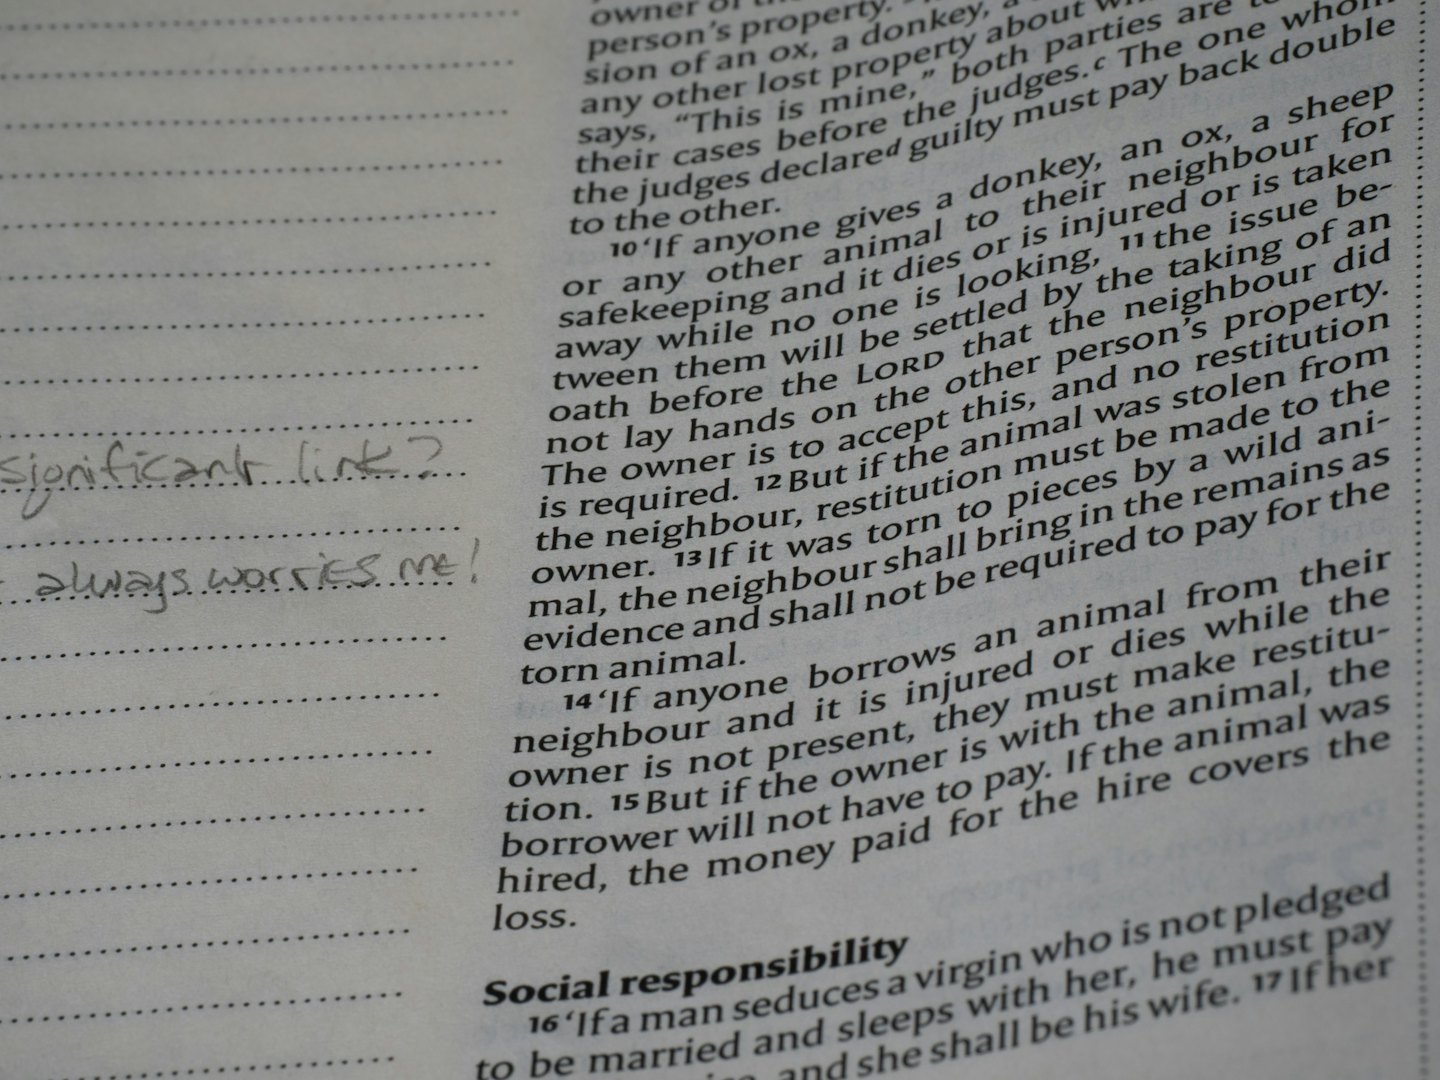 significant link?
always worries me!
owner of
person's property.
sion of an ox, a donkey, a
any other lost property about
says, “This is mine,” both parties are to
their cases before the judges.c The one whom
the judges declaredd guilty must pay back double
to the other.
10 ‘If anyone gives a donkey, an ox, a sheep
or any other animal to their neighbour for
safekeeping and it dies or is injured or is taken
away while no one is looking, 11 the issue be-
tween them will be settled by the taking of an
oath before the LORD that the neighbour did
not lay hands on the other person’s property.
The owner is to accept this, and no restitution
is required. 12 But if the animal was stolen from
the neighbour, restitution must be made to the
owner. 13 If it was torn to pieces by a wild ani-
mal, the neighbour shall bring in the remains as
evidence and shall not be required to pay for the
torn animal.
14 ‘If anyone borrows an animal from their
neighbour and it is injured or dies while the
owner is not present, they must make restitu-
tion. 15 But if the owner is with the animal, the
borrower will not have to pay. If the animal was
hired, the money paid for the hire covers the
loss.
Social responsibility
16 ‘If a man seduces a virgin who is not pledged
to be married and sleeps with her, he must pay
and she shall be his wife. 17 If her